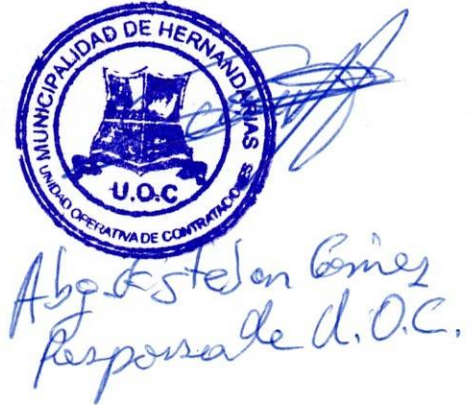 MUNICIPALIDAD DE HERNANDARIAS
U.O.C
UNIDAD OPERATIVA DE CONTRATACIONES
Abg. Esteban Gómez
Responsable U.O.C.